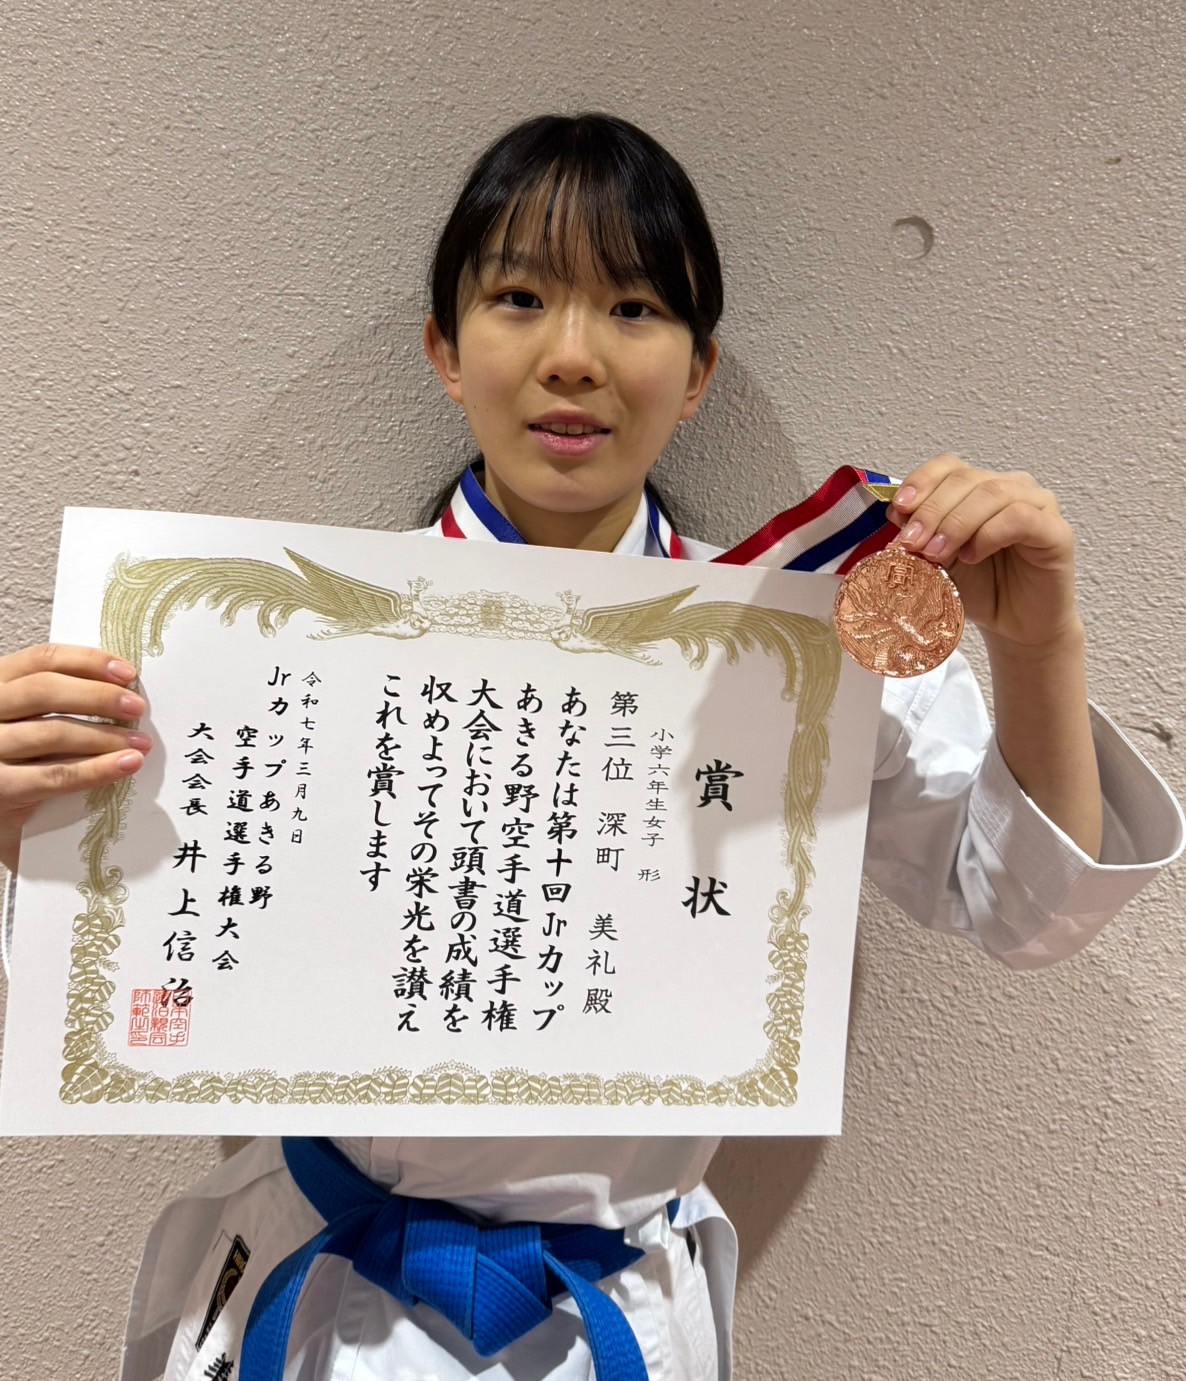 賞状
小学六年生女子 形
第三位 深町 美礼殿
あなたは第十回Jrカップ
あきる野空手道選手権
大会において頭書の成績を
収めよってその栄光を讃え
これを賞します
令和七年三月九日
Jrカップあきる野
空手道選手権大会
大会会長 井上信治